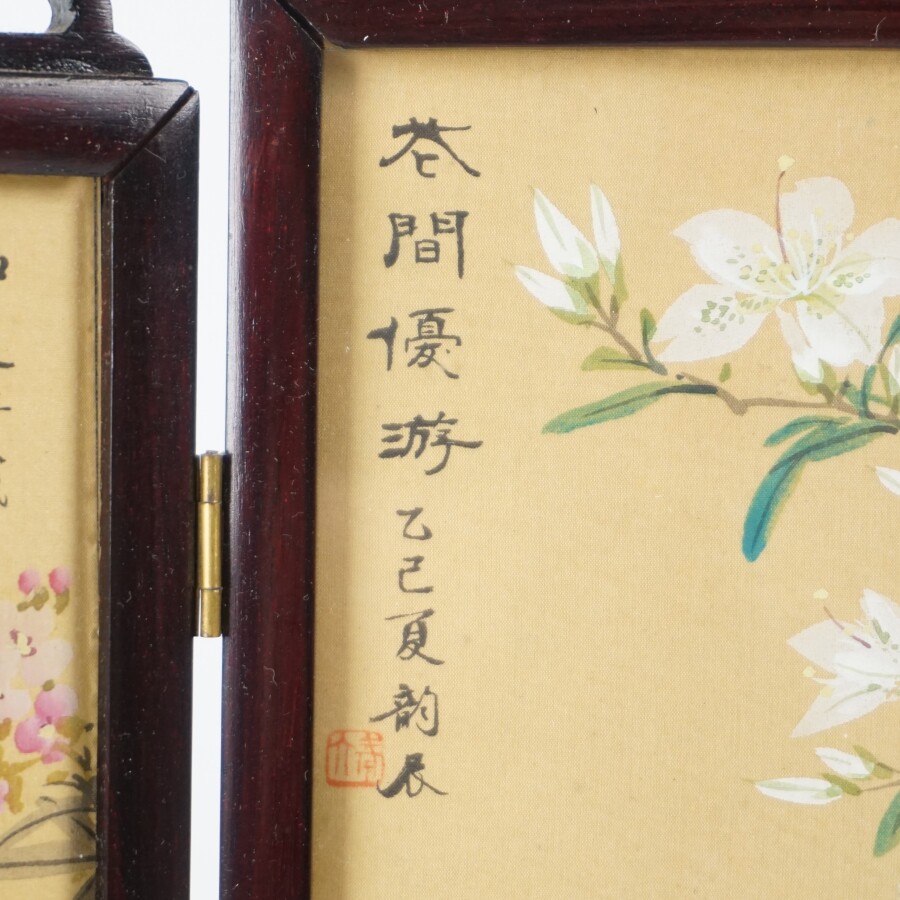 花間優游乙己夏韵辰